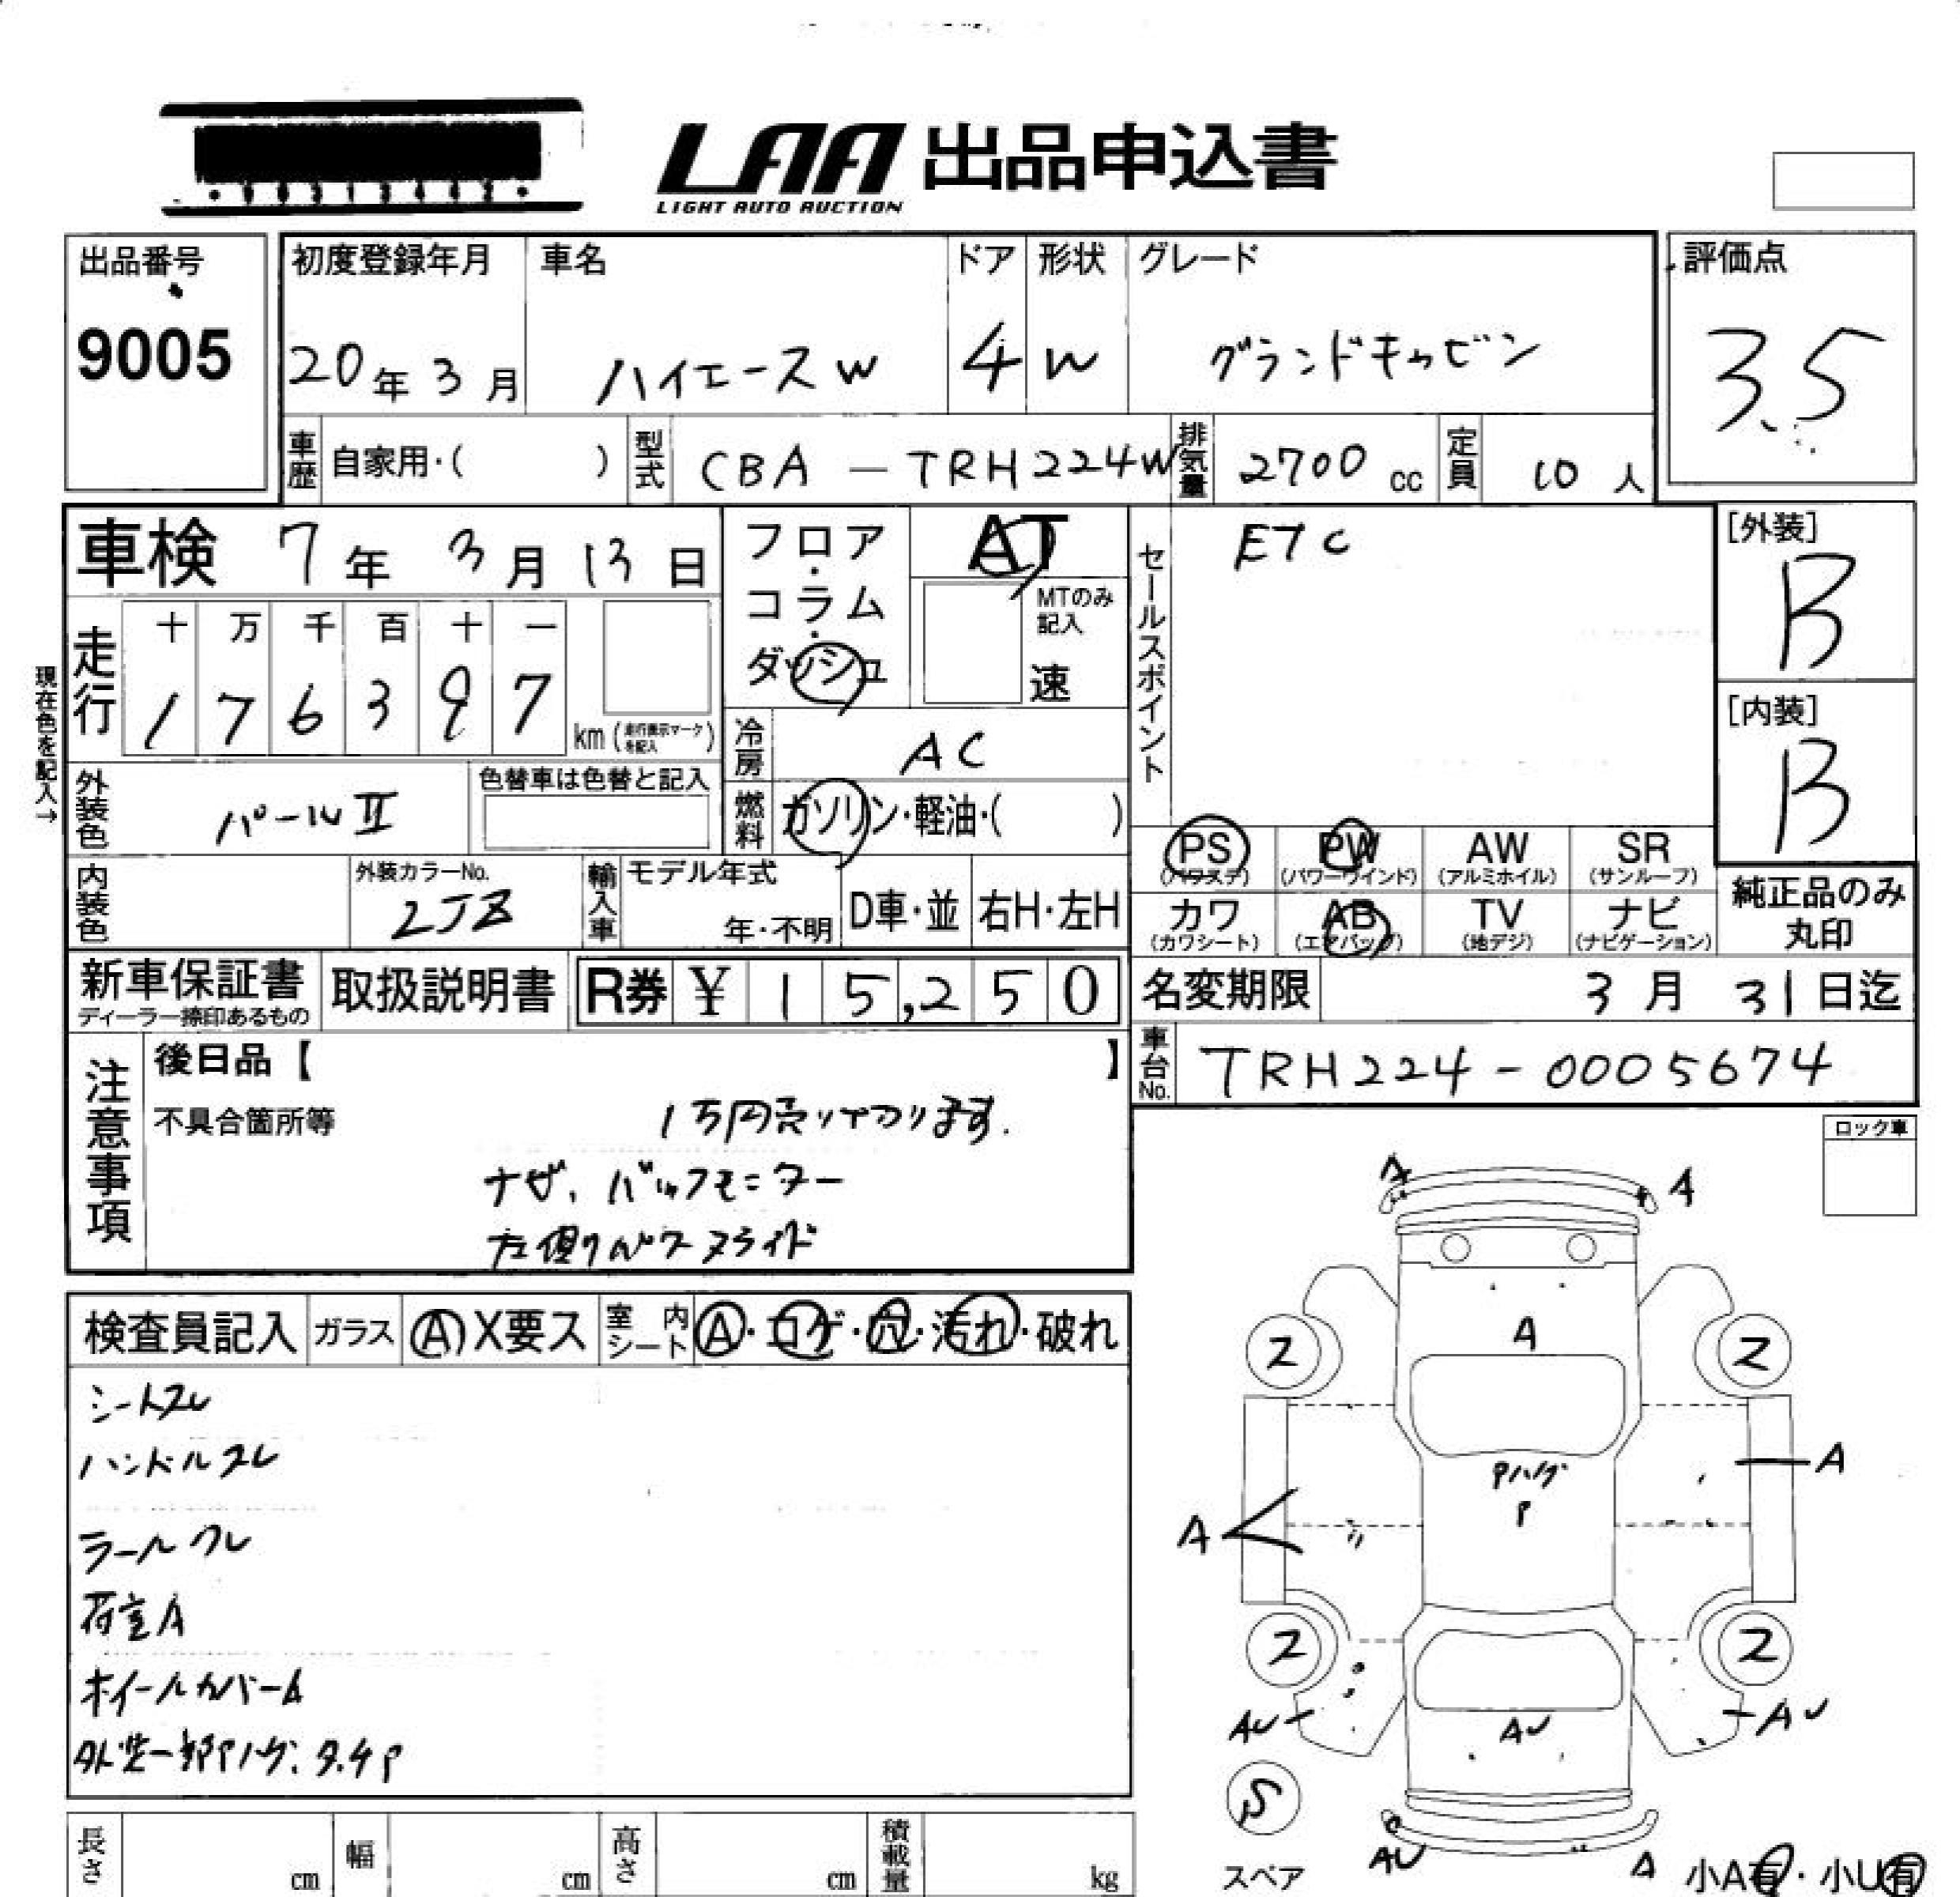 LAA 出品申込書
LIGHT AUTO AUCTION
出品番号
9005
初度登録年月
20年 3月
車名
ハイエースW
ドア
4
形状
W
グレード
グランドキャビン
評価点
3.5
車歴 自家用・( )
型式 CBA-TRH224W
排気量 2700 cc
定員 10 人
車検 7年 3月 13日
走行
十 万 千 百 十 一
1 7 6 3 9 7
km (走行表示マークを記入)
現在色を記入→
フロア・コラム・ダッシュ
AT
MTのみ記入
速
冷房 AC
燃料 ガソリン・軽油・( )
セールスポイント
ETC
[外装]
B
[内装]
B
外装色 パールII
色替車は色替と記入
内装色
外装カラーNo.
2JZ
輸入車
モデル年式
年・不明
D車・並
右H・左H
PS (パワステ)
PW (パワーウインド)
AW (アルミホイル)
SR (サンルーフ)
カワ (カワシート)
AB (エアバッグ)
TV (地デジ)
ナビ (ナビゲーション)
純正品のみ
丸印
新車保証書
ディーラー捺印あるもの
取扱説明書
R券 ¥ 15,250
名変期限 3月 31日迄
車台No. TRH224-0005674
注意事項
後日品【 】
不具合箇所等
1万円売り切ります.
ナビ、バックモニター
左側リアパワースライド
ロック車
検査員記入
ガラス A X要ス
室内シート A・コゲ・穴・汚れ・破れ
シートスレ
ハンドルスレ
荷室A
ホイールカバーA
外装一部Pハゲ、タッチP
A
A
A
2
2
Pハゲ
P
A
A
2
2
AU
AU
AU
S
スペア
AU
A
小A有・小U有
長さ cm
幅 cm
高さ cm
積載量 kg